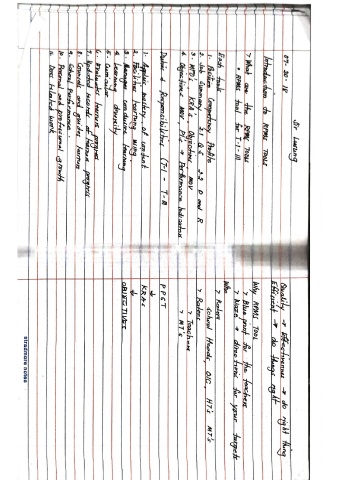 07-30-18
Sir Lusung
Introduction to RPMS TOOLS
> What are the RPMS TOOLS
* RPMS tool for T-I-III
Each tools
1. Position Competency Profile
2. Job Summary 2.1 Q S 2.2 D and R
3. MFO's, KRA's, Objectives MOV
4. Objectives, MOV, PI's → Performance Indicators
Duties & Responsibilities (T-I - T-III
1. Applies mastery of content
2. Facilitates learning using
3. Manages conducive learning
4. Learners diversity
5. Curriculum
6. Evaluates learners progress
7. Updated records of learners progress
8. Counsels and guides learners
9. School Performance
10. Personal and professional growth
11. Does related work
Quality → Effectiveness → do right thing
Efficient → do things right
Why RPMS TOOL
> Blue print for the teachers
> → directions for your targets
Who
> Raters
school Heads, OIC, HT's MT's
> Ratees
> Teachers
> MT's
PPST
↓
KRAs
↓
OBJECTIVES
stradmore notes